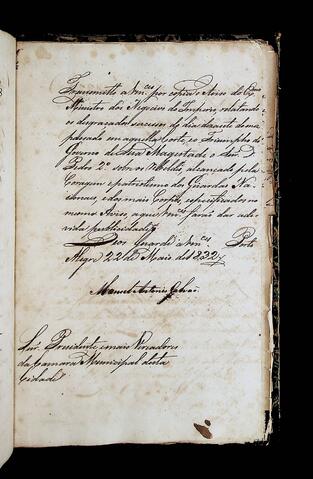 Transmitto a Vm.ces por copia o Aviso do Exmo
Ministro dos Negocios do Imperio, relatando
o desgraçado successo do dia dezasete do mez
passado em aquella Corte, e o Triumpho do
Governo de Sua Magestade o Snr. D.
Pedro 2.º sobre os rebeldes alcançado pela
Coragem e patriotismo dos Guardas Na-
cionaes, e dos mais Corpos, especificados no
mesmo Aviso, a que Vm.ces farão dar a de-
vida publicidade.
Deos Guarde a Vm.ces Porto
Alegre 22 de Maio de 1832
Manuel Antonio Galvão
Snr. Presidente e mais Vereadores
da Camara Municipal desta
Cidade